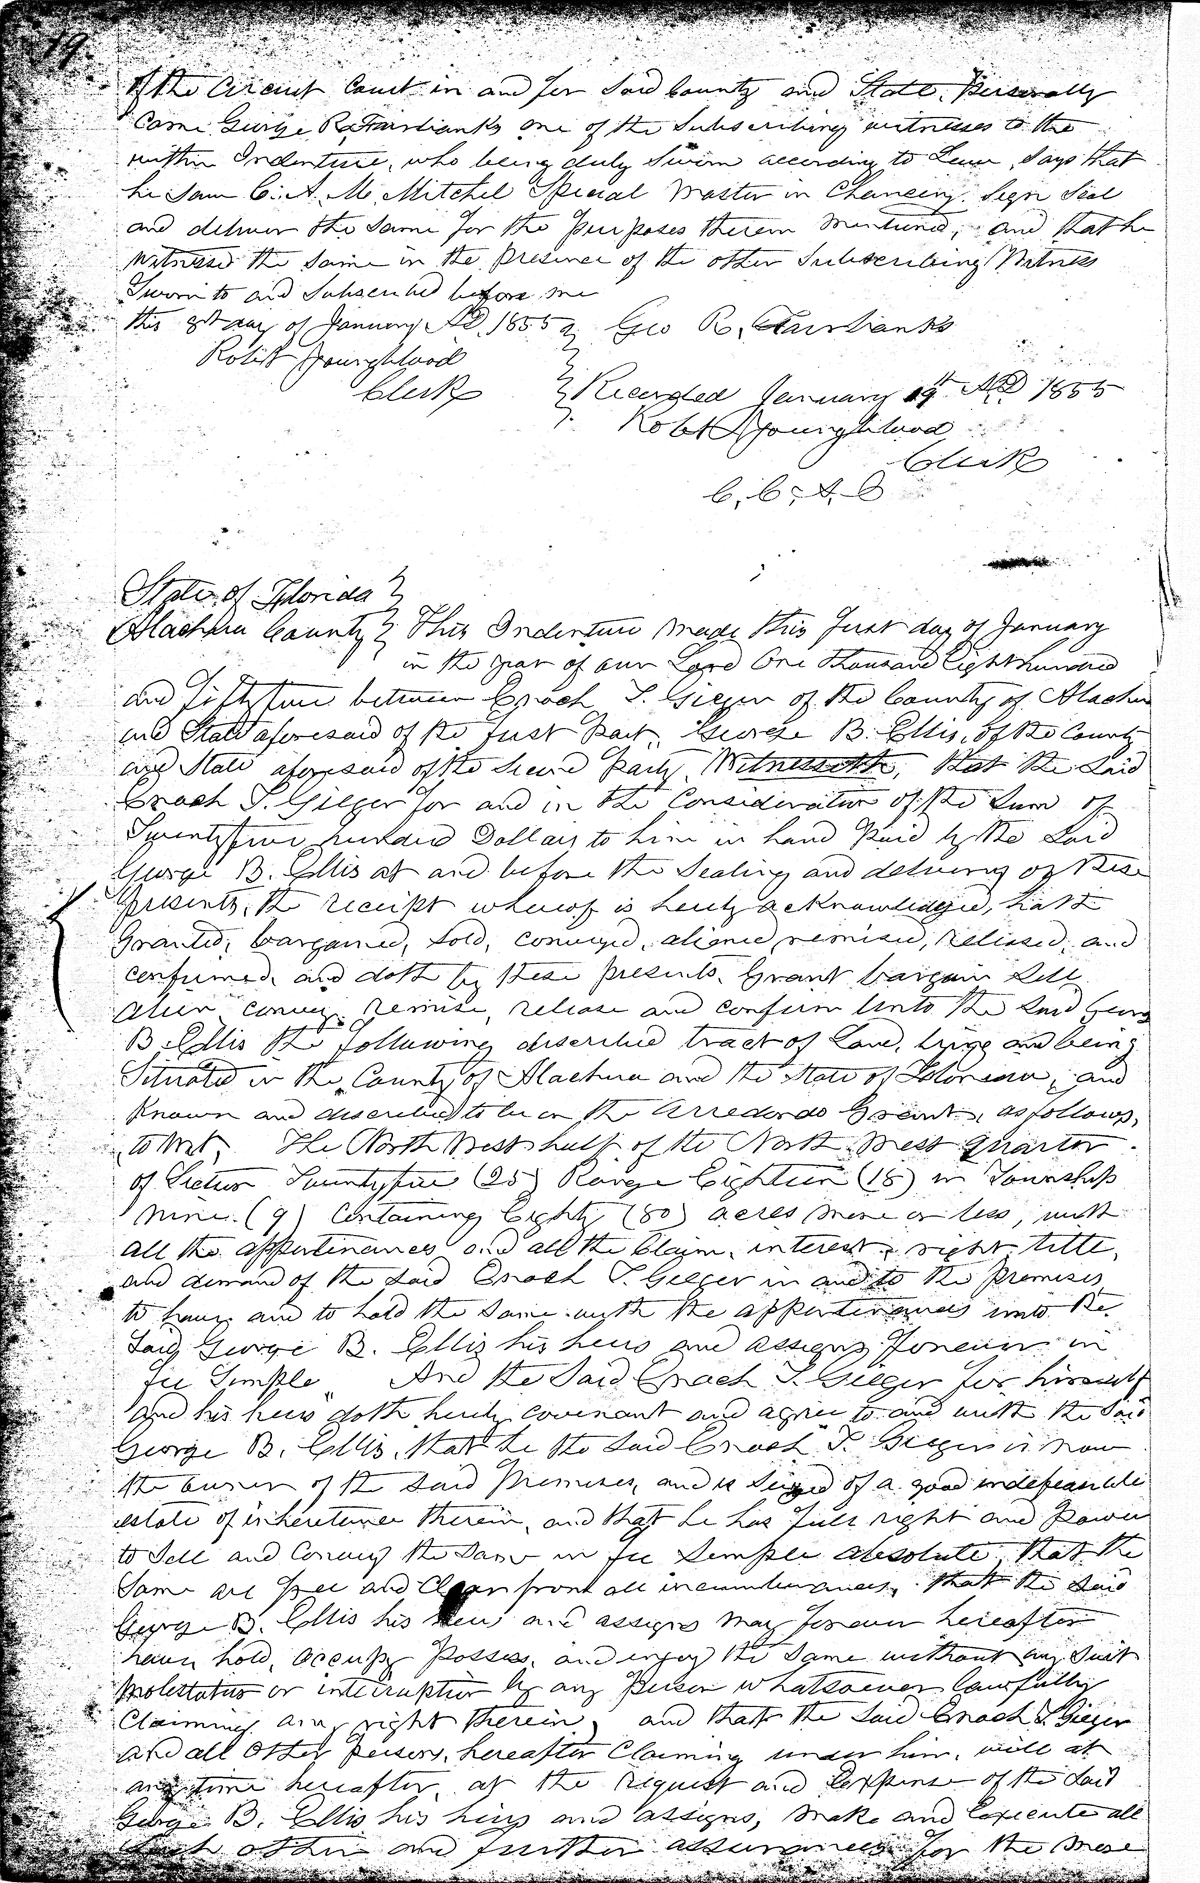 19
of the Circuit Court in and for Said County and State, Personally
Came George R. Fairbanks one of the Subscribing witnesses to the
within Indenture, who being duly Sworn according to Law, Says that
he Saw C. A. M. Mitchel Special Master in Chancery Sign Seal
and deliver the Same for the Purposes therein Mentioned, and that he
Witnessed the Same in the Presence of the other Subscribing Witness
Sworn to and Subscribed before me
this 8th day of January AD, 1855 Geo R, Fairbanks
Robt Youngblood
Clerk
Recorded January 19th AD 1855
Robt Youngblood
Clerk
C, C, A, C
State of Florida
Alachua County This Indenture made this first day of January
in the year of our Lord One thousand Eight hundred
and fifty five between Enoch T. Gieger of the County of Alachua
and State aforesaid of the first Part, George B. Ellis, of the County
and State aforesaid of the Second Party, Witnesseth, that the Said
Enoch T. Gieger for and in the Consideration of the Sum of
Twenty five hundred Dollars to him in hand Paid by the Said
George B. Ellis at and before the Sealing and delivery of these
Presents, the receipt whereof is hereby acknowledged, hath
Granted, bargained, Sold, conveyed, aliened, remised, released, and
confirmed, and doth by these presents, Grant bargain Sell
alien, convey, remise, release and confirm Unto the Said George
B. Ellis the following described tract of Land, lying and being
Situated in the County of Alachua and the State of Florida, and
Known and described to be in the Arredondo Grant, as follows,
to Wit, The North West half of the North West quarter
of Section Twenty five (25) Range Eighteen (18) in Township
Nine (9) Containing Eighty (80) acres more or less, with
all the appurtinances and all the Claim, interest, right, title,
and demand of the said Enoch T. Gieger in and to the Premises,
to have and to hold the Same with the appurtinances unto the
Said George B. Ellis his heirs and assigns forever in
fee Simple And the Said Enoch T. Gieger for himself
and his heirs doth hereby covenant and agree to and with the Said
George B. Ellis, that he the Said Enoch T. Gieger is now
the owner of the Said Premises, and is Seized of a good indefeasible
estate of inheritance therein, and that he has full right and Power
to Sell and Convey the Same in fee Simple absolute, that the
Same are free and Clear from all incumberances, that the Said
George B. Ellis his heirs and assigns may forever hereafter
have, hold, occupy Possess, and enjoy the Same without any Suit
Molestation or interruption by any Person whatsoever lawfully
Claiming any right therein, and that the Said Enoch T. Gieger
and all Other Persons, hereafter Claiming under him, will at
any time hereafter, at the request and Expense of the Said
George B. Ellis his heirs and assigns, make and Execute all
Such other and further assurances for the more